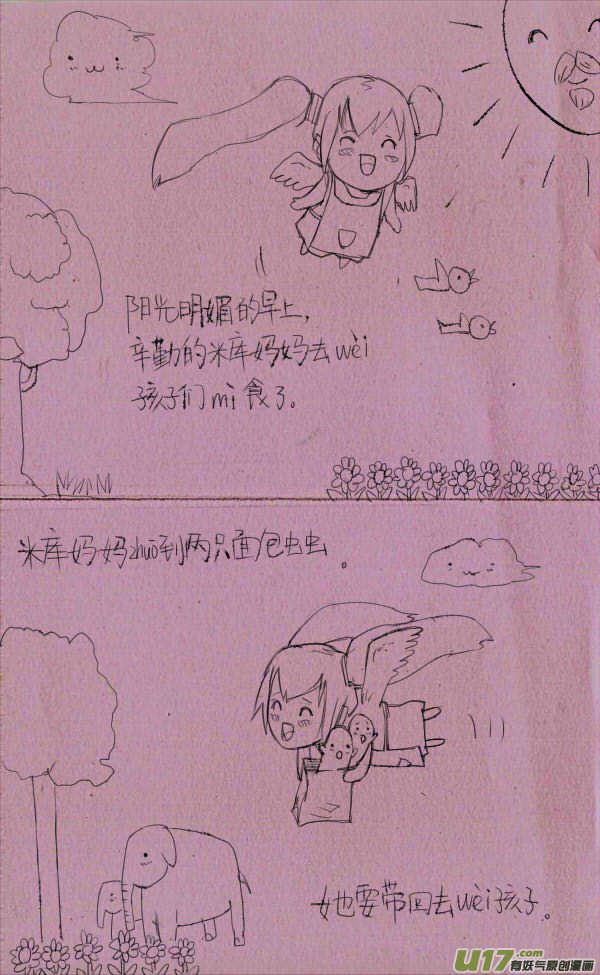 阳光明媚的早上，
辛勤的米库妈妈去wèi
孩子们mì食了。
米库妈妈zhuō到两只面包虫虫。
她要带回去wèi孩子。
U17.com
有妖气原创漫画